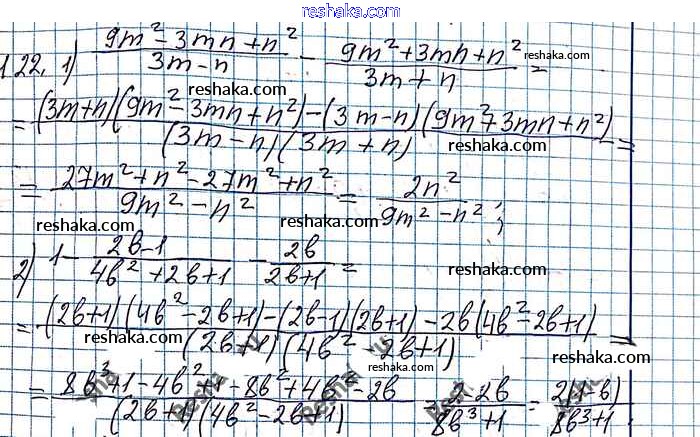 reshaka.com
1.22. 1) (9m² - 3mn + n²)/(3m - n) - (9m² + 3mn + n²)/(3m + n) = reshaka.com
= ((3m+n)(9m² - 3mn + n²) - (3m-n)(9m² + 3mn + n²))/((3m - n)(3m + n)) = reshaka.com reshaka.com
= (27m² + n² - 27m² + n²)/(9m² - n²) = 2n²/(9m² - n²); reshaka.com reshaka.com
reshaka.com
2) 1 - (2b-1)/(4b² + 2b + 1) - 2b/(2b+1) = reshaka.com
= ((2b+1)(4b² - 2b+1) - (2b-1)(2b+1) - 2b(4b² - 2b+1))/((2b+1)(4b² - 2b+1)) = reshaka.com reshaka.com
= (8b³+1 - 4b²+1 - 8b²+4b² - 2b)/((2b+1)(4b² - 2b+1)) = (2-2b)/(8b³+1) = 2(1-b)/(8b³+1). reshaka.com